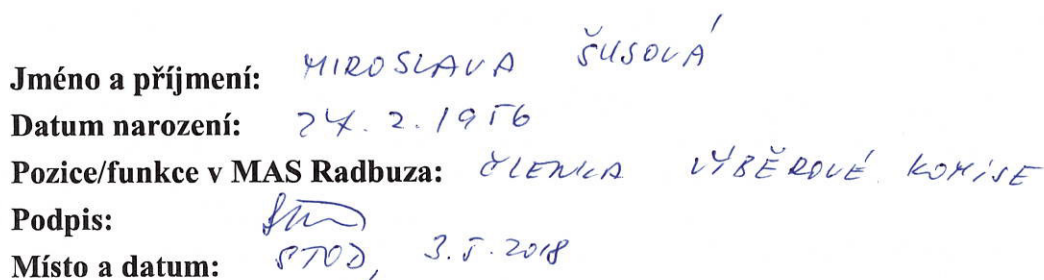 Jméno a příjmení: MIROSLAVA ŠUSOVÁ
Datum narození: 24. 2. 1956
Pozice/funkce v MAS Radbuza: ČLENKA VÝBĚROVÉ KOMISE
Podpis:
Místo a datum: STOD, 3.5.2018